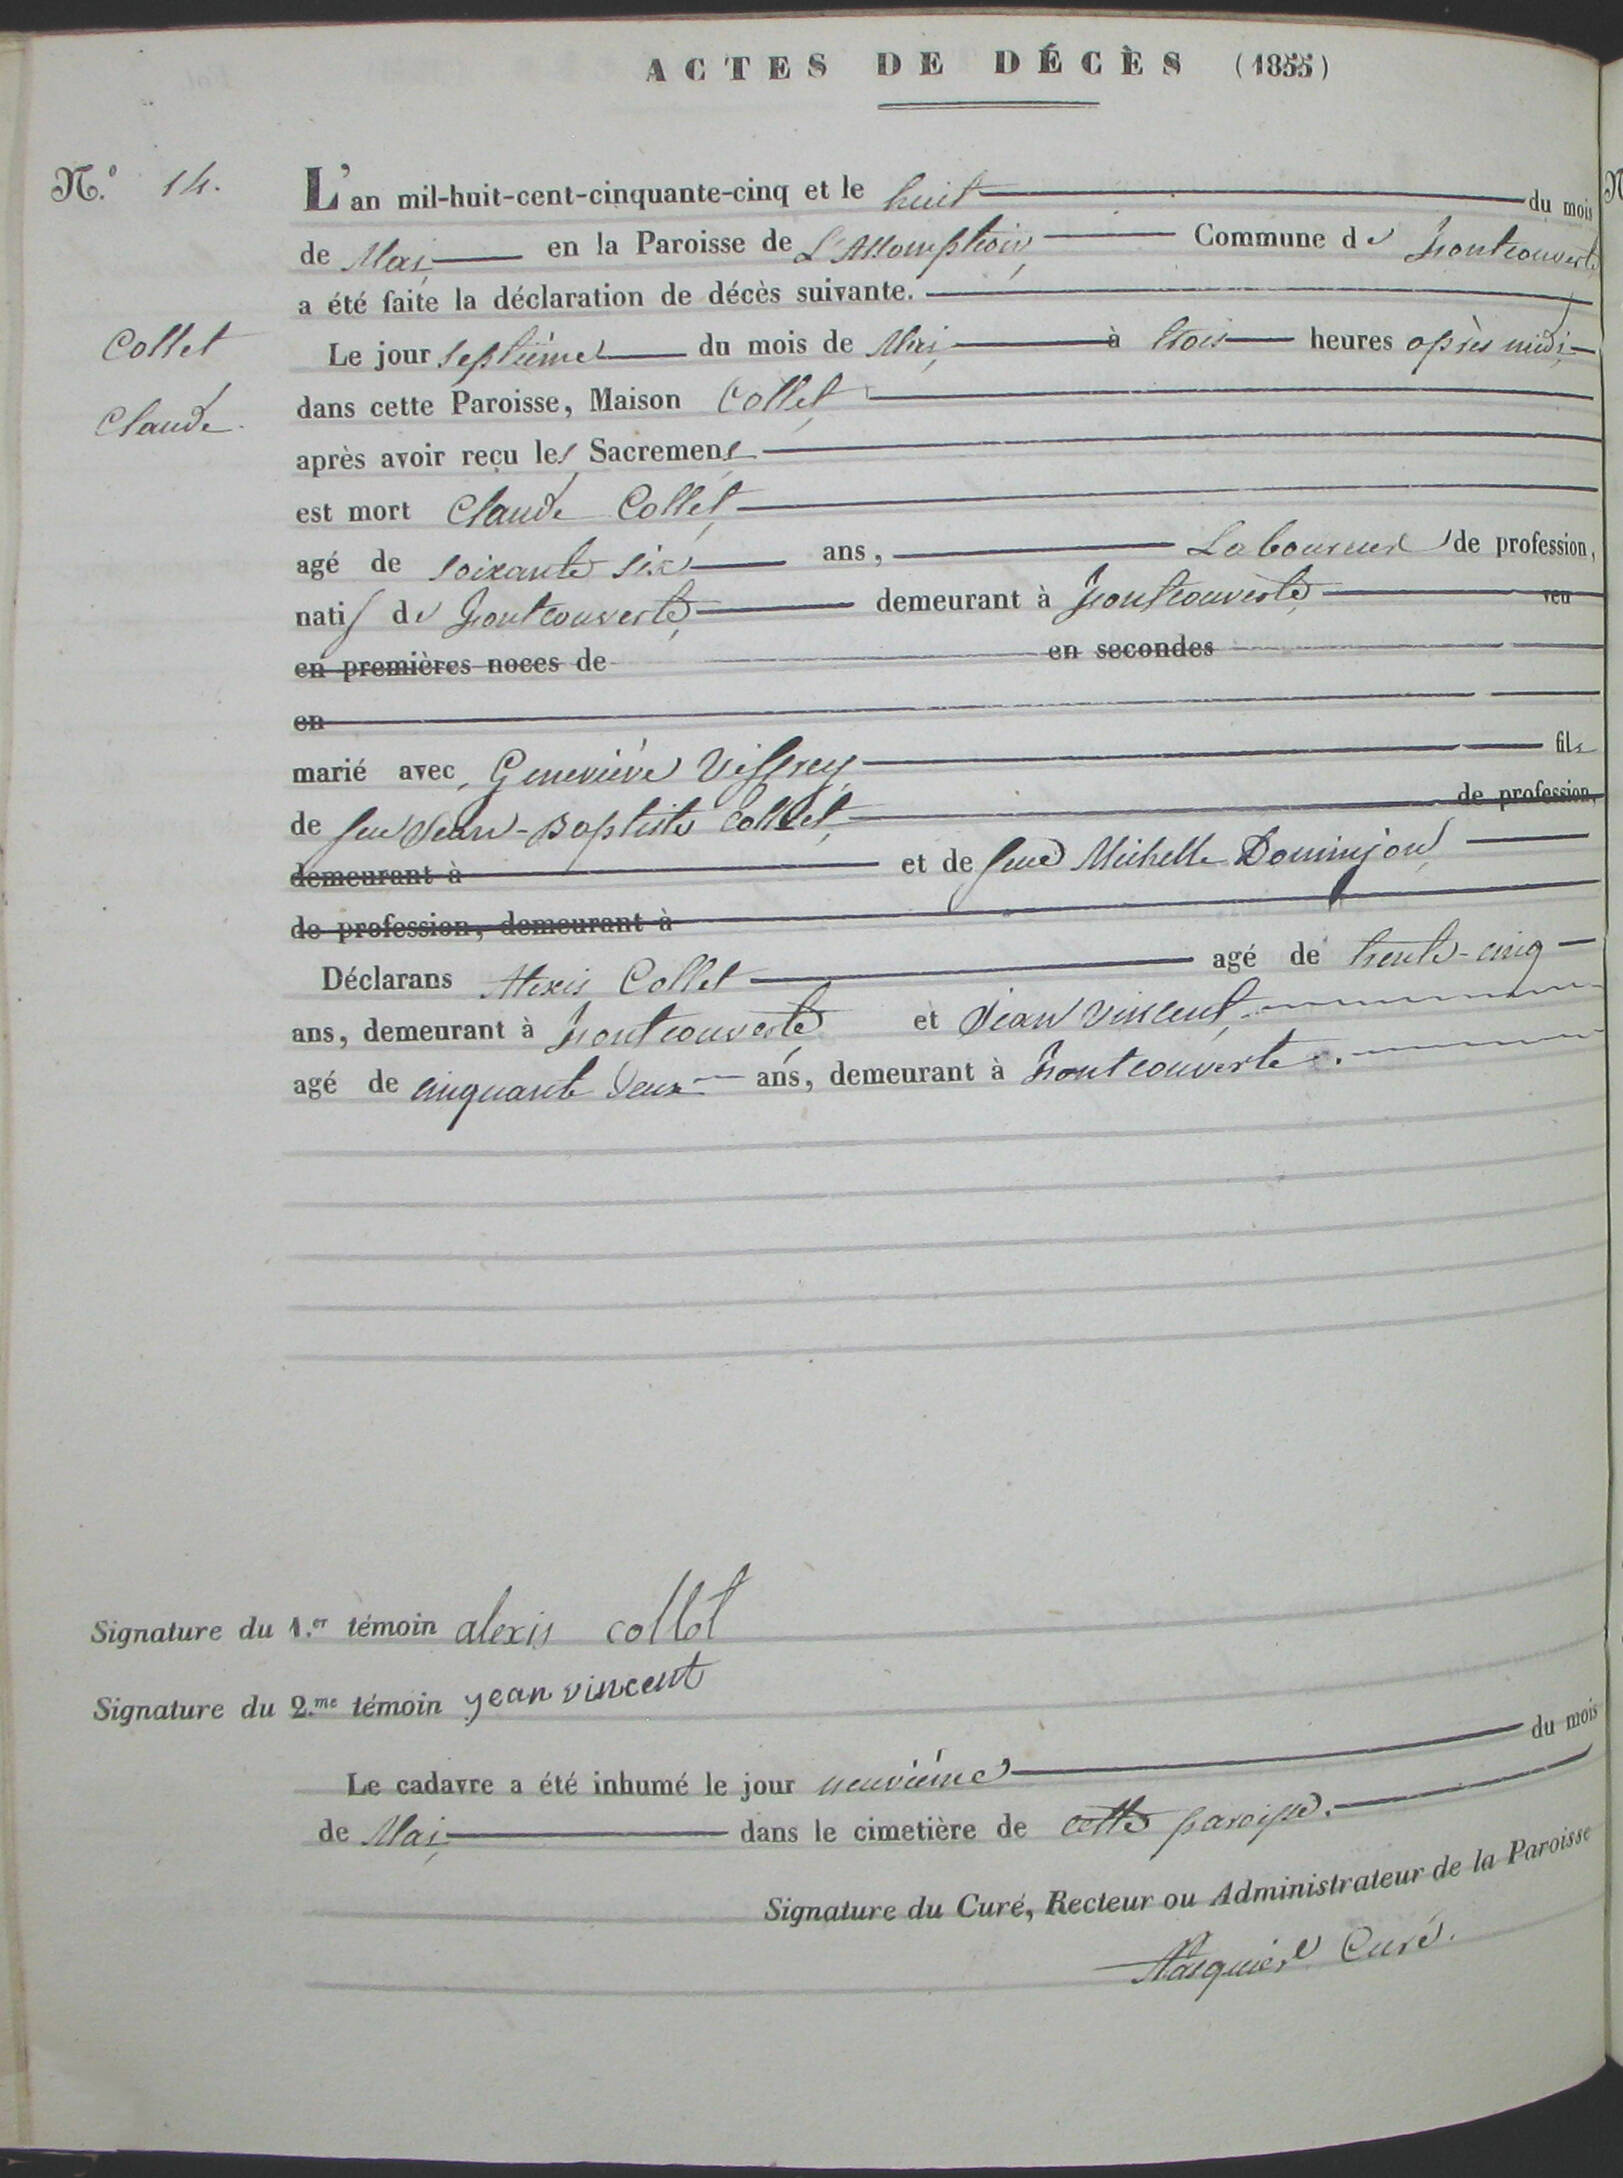 ACTES DE DÉCÈS (1855)
N.° 14.
L'an mil-huit-cent-cinquante-cinq et le huit du mois
de Mai en la Paroisse de L'Assomption Commune de Fontcouverte
a été faite la déclaration de décès suivante.
Collet
Le jour septième du mois de Mai à trois heures après midi
Claude.
dans cette Paroisse, Maison Collet
après avoir reçu les Sacremens
est mort Claude Collet
agé de soixante six ans, Laboureur de profession,
natif de Fontcouverte, demeurant à Fontcouverte veu
en premières noces de en secondes
en
marié avec Geneviève Viffrey fils
de feu Jean-Baptiste Collet, de profession,
demeurant à et de feue Michelle Dominjon
de profession, demeurant à
Déclarans Alexis Collet agé de trente-cinq
ans, demeurant à Fontcouverte et Jean Vincent
agé de cinquante deux ans, demeurant à Fontcouverte.
Signature du 1.er témoin alexis collet
Signature du 2.me témoin jean vincent
Le cadavre a été inhumé le jour neuvième du mois
de Mai dans le cimetière de cette paroisse.
Signature du Curé, Recteur ou Administrateur de la Paroisse
Curé.